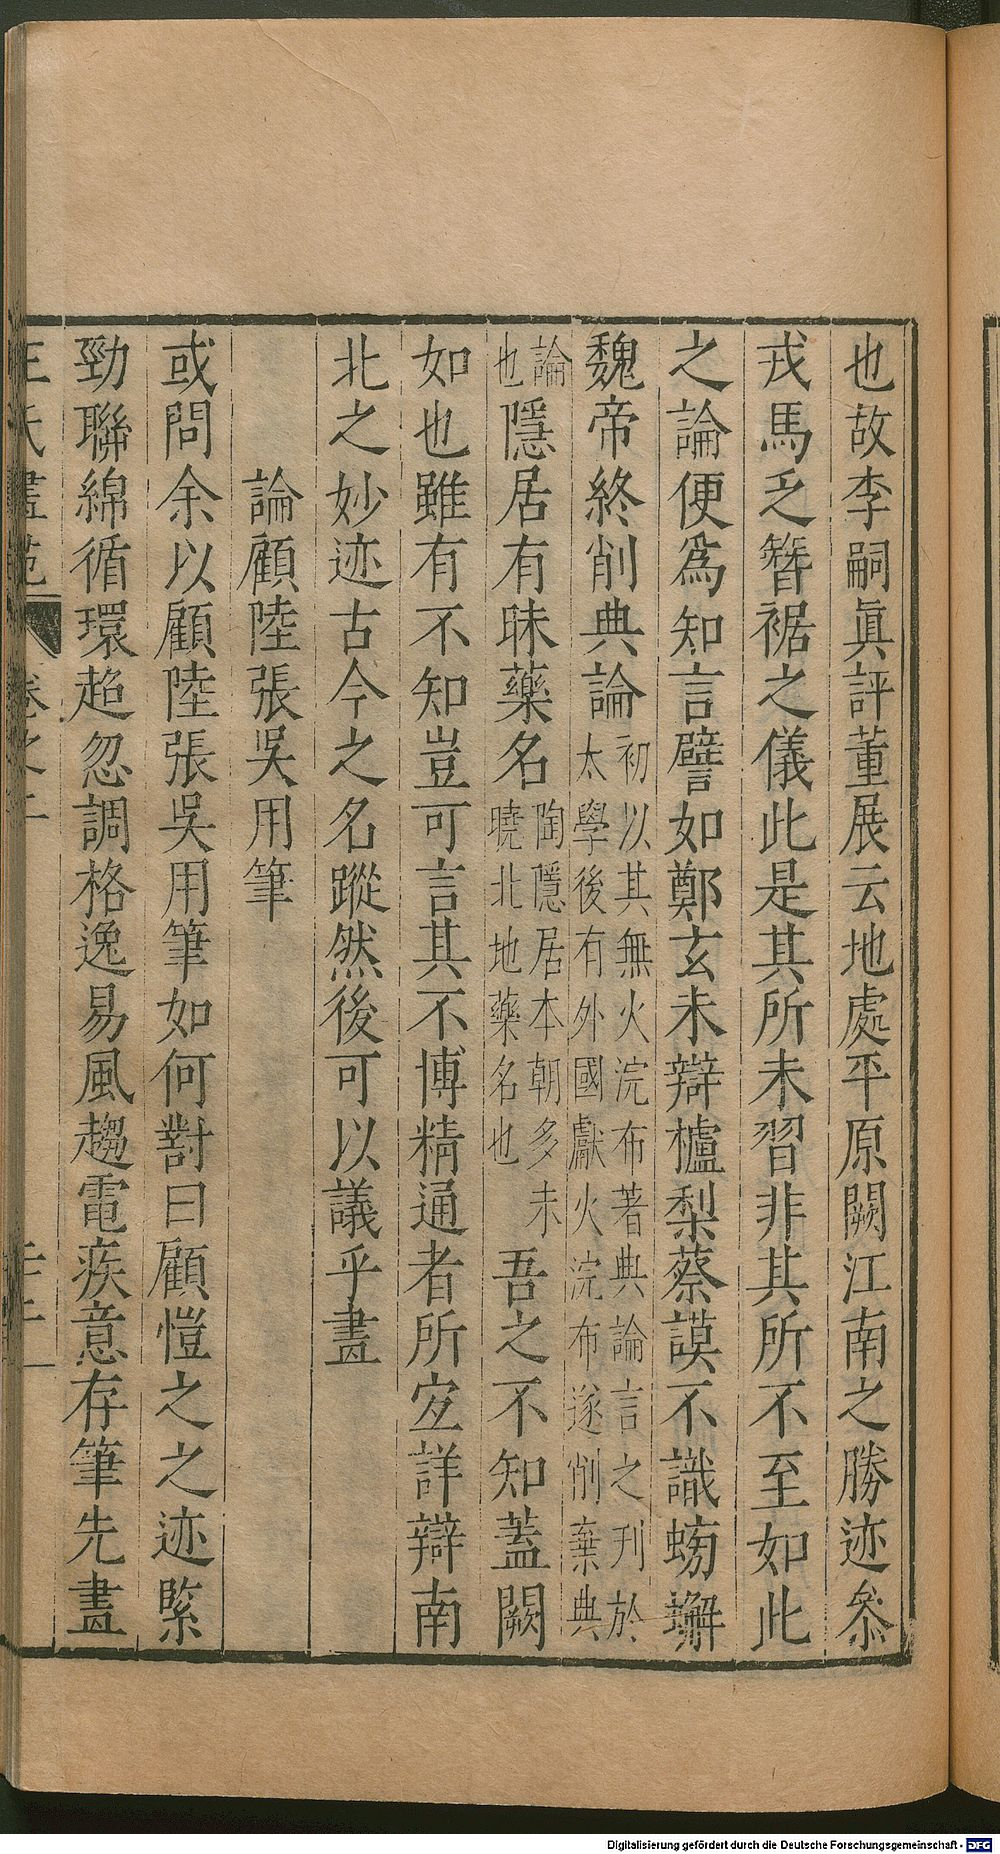 也故李嗣眞評董展云地處平原闕江南之勝迹叅
戎馬乏簪裾之儀此是其所未習非其所不至如此
之論便爲知言譬如鄭玄未辯櫨梨蔡謨不識螃蠏
魏帝終削典論初以其無火浣布著典論言之刋於太學後有外國獻火浣布遂削棄典
論也隱居有昧藥名陶隱居本朝多未曉北地藥名也吾之不知蓋闕
如也雖有不知豈可言其不博精通者所宐詳辯南
北之妙迹古今之名蹤然後可以議乎畫
論顧陸張吳用筆
或問余以顧陸張吳用筆如何對曰顧愷之之迹緊
勁聯綿循環超忽調格逸易風趨電疾意存筆先畫
王氏畫苑 卷之二
Digitalisierung gefördert durch die Deutsche Forschungsgemeinschaft - DFG